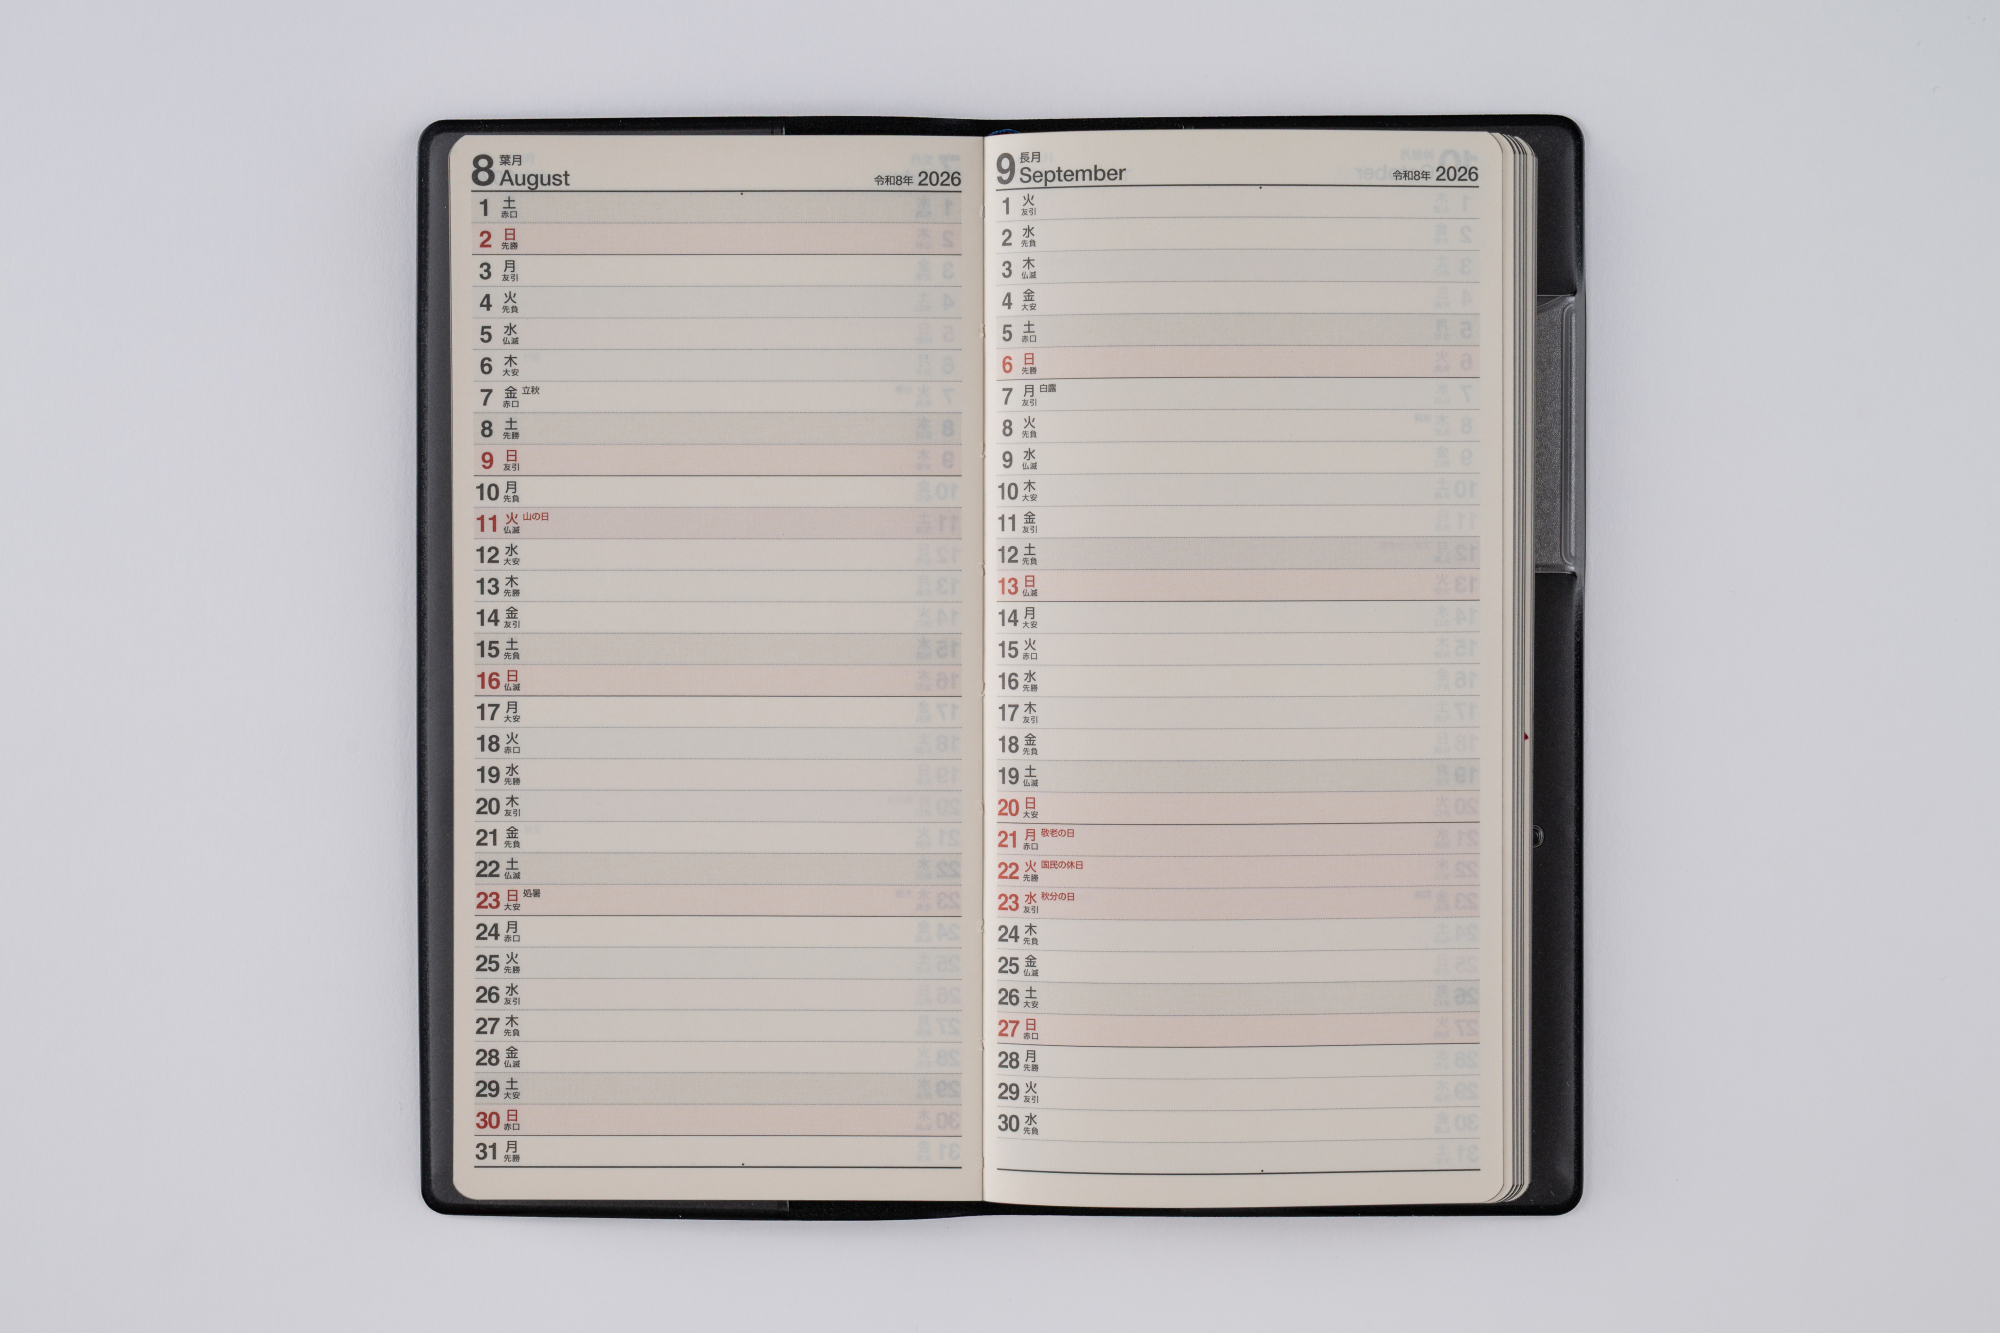 8 葉月
August 令和8年 2026
1 土 赤口
2 日 先勝
3 月 友引
4 火 先負
5 水 仏滅
6 木 大安
7 金 赤口 立秋
8 土 先勝
9 日 友引
10 月 先負
11 火 仏滅 山の日
12 水 大安
13 木 先勝
14 金 友引
15 土 先負
16 日 仏滅
17 月 大安
18 火 赤口
19 水 先勝
20 木 友引
21 金 先負
22 土 仏滅
23 日 大安 処暑
24 月 赤口
25 火 先勝
26 水 友引
27 木 先負
28 金 仏滅
29 土 大安
30 日 赤口
31 月 先勝
9 長月
September 令和8年 2026
1 火 友引
2 水 先負
3 木 仏滅
4 金 大安
5 土 赤口
6 日 先勝
7 月 友引 白露
8 火 先負
9 水 仏滅
10 木 大安
11 金 友引
12 土 先負
13 日 仏滅
14 月 大安
15 火 赤口
16 水 先勝
17 木 友引
18 金 先負
19 土 仏滅
20 日 大安
21 月 赤口 敬老の日
22 火 先勝 国民の休日
23 水 友引 秋分の日
24 木 先負
25 金 仏滅
26 土 大安
27 日 赤口
28 月 先勝
29 火 友引
30 水 先負